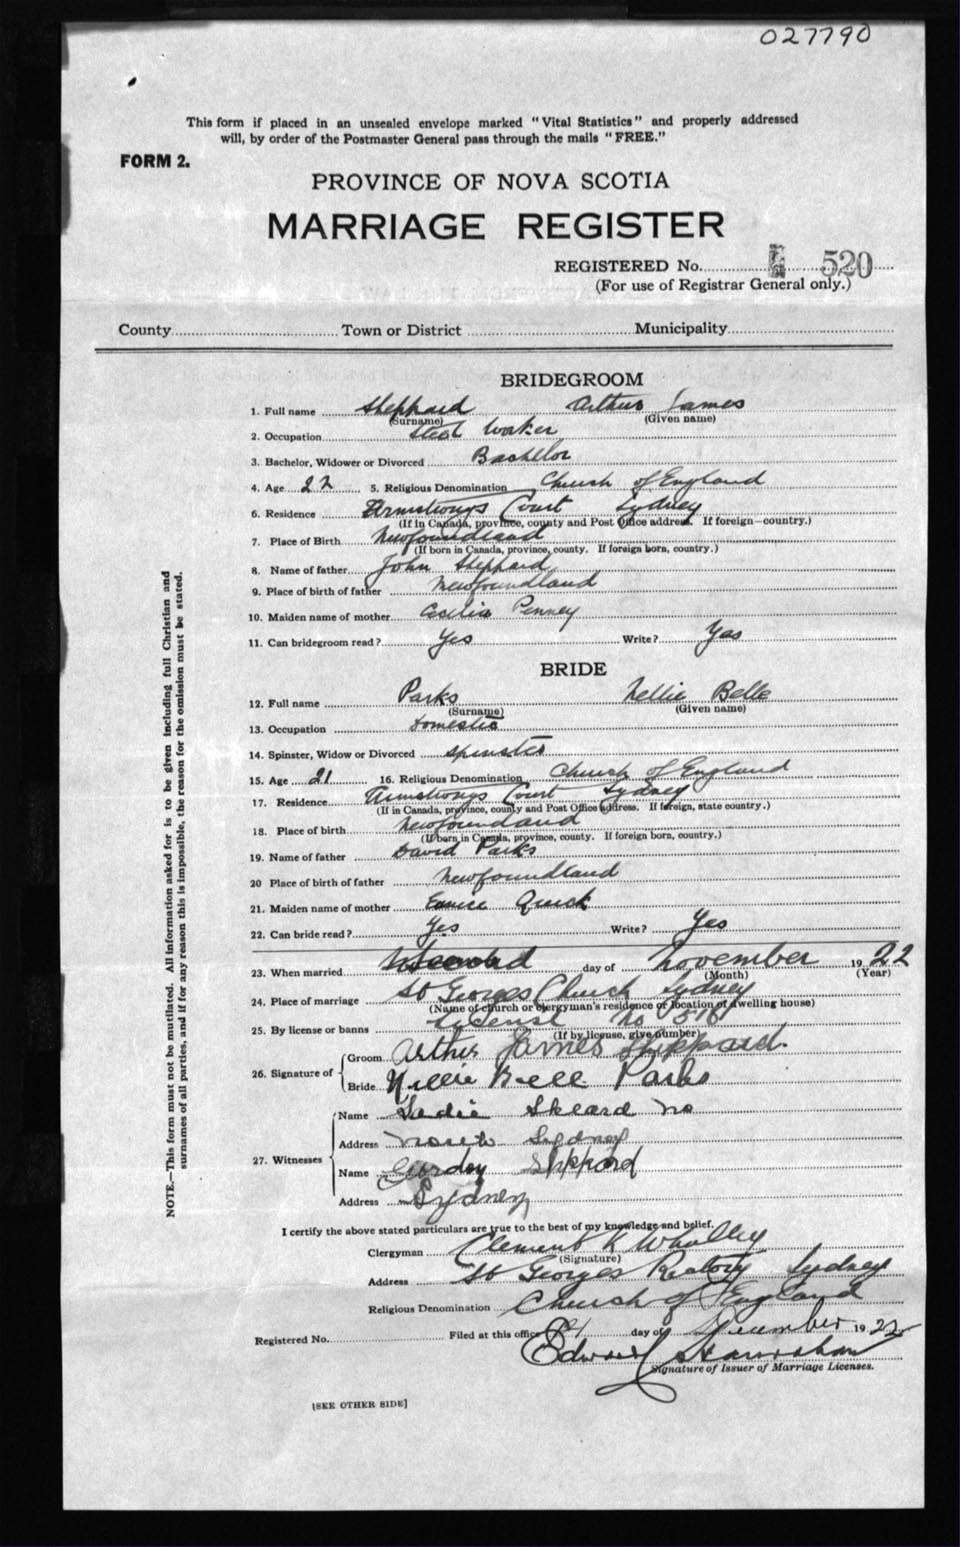 027790
This form if placed in an unsealed envelope marked "Vital Statistics" and properly addressed
will, by order of the Postmaster General pass through the mails "FREE."
FORM 2.
PROVINCE OF NOVA SCOTIA
MARRIAGE REGISTER
REGISTERED No. 520
(For use of Registrar General only.)
County Town or District Municipality
BRIDEGROOM
1. Full name Sheppard Arthur James
(Surname) (Given name)
2. Occupation Steel Worker
3. Bachelor, Widower or Divorced Bachelor
4. Age 22 5. Religious Denomination Church of England
6. Residence Armstrongs Court Sydney
(If in Canada, province, county and Post Office address. If foreign—country.)
7. Place of Birth Newfoundland
(If born in Canada, province, county. If foreign born, country.)
8. Name of father John Sheppard
9. Place of birth of father Newfoundland
10. Maiden name of mother Cecilia Penney
11. Can bridegroom read? Yes Write? Yes
BRIDE
12. Full name Parks Nellie Belle
(Surname) (Given name)
13. Occupation Domestic
14. Spinster, Widow or Divorced Spinster
15. Age 21 16. Religious Denomination Church of England
17. Residence Armstrongs Court Sydney
(If in Canada, province, county and Post Office address. If foreign, state country.)
18. Place of birth Newfoundland
(If born in Canada, province, county. If foreign born, country.)
19. Name of father David Parks
20 Place of birth of father Newfoundland
21. Maiden name of mother Eunice Quick
22. Can bride read? Yes Write? Yes
23. When married Second day of November 1922
(Month) (Year)
24. Place of marriage St Georges Church Sydney
(Name of church or clergyman's residence or location of dwelling house)
25. By license or banns License No 516
(If by license, give number)
26. Signature of Groom Arthur James Sheppard.
Bride Nellie Bell Parks
27. Witnesses Name Sadie Skeard
Address North Sydney
Name Gordon Sheppard
Address Sydney
I certify the above stated particulars are true to the best of my knowledge and belief.
Clergyman Clement K Whalley
(Signature)
Address St Georges Rectory Sydney
Religious Denomination Church of England
Registered No. Filed at this office day of December 1922
Edward
Signature of Issuer of Marriage Licenses.
[SEE OTHER SIDE]
NOTE.—This form must not be mutilated. All information asked for is to be given including full Christian and
surnames of all parties, and if for any reason this is impossible, the reason for the omission must be stated.